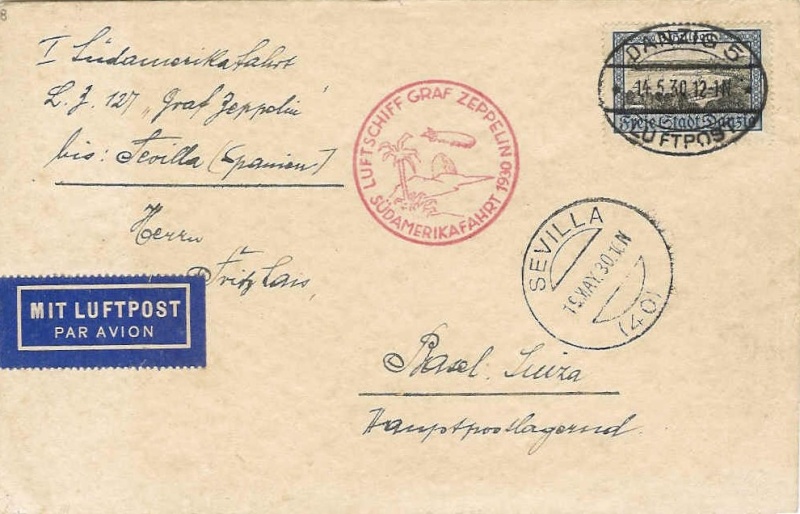 8
I Südamerikafahrt
L. Z. 127 „Graf Zeppelin"
bis: Sevilla (Spanien)
LUFTSCHIFF GRAF ZEPPELIN
SÜDAMERIKAFAHRT 1930
DANZIG 5
14.5.30.12-1N
Freie Stadt Danzig
LUFTPOST
Herrn
Fritz
SEVILLA
19.MAY.30.1.N
(40)
MIT LUFTPOST
PAR AVION
Basel. Suiza
Hauptpostlagernd